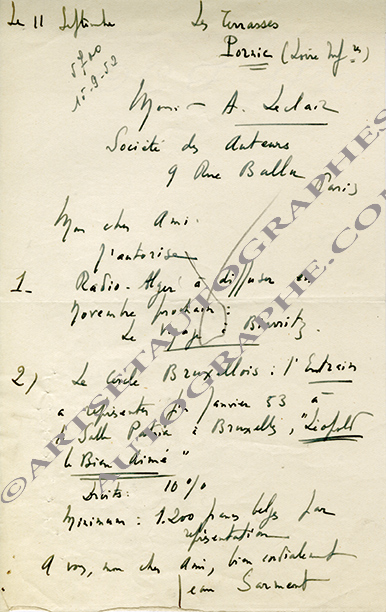 Le 11 Septembre
Les Terrasses
Pornic (Loire Infre)
15-9-52
Monsieur A. Leclair
Société des Auteurs
9 Rue Ballu
Paris
Mon cher Ami.
J'autorise
1_ Radio-Alger à diffuser en
Novembre prochain :
Le Voyage à Biarritz.
2) Le Cercle Bruxellois : l'Entrain
à représenter en Janvier 53 à
la Salle Patria à Bruxelles, "Léopold
le Bien Aimé"
Droits : 10 %
Minimum : 1.200 francs belges par
représentation
A vous, mon cher Ami, bien cordialement
Jean Sarment
©ARTSETAUTOGRAPHES.COM
AUTOGRAPHE.COM